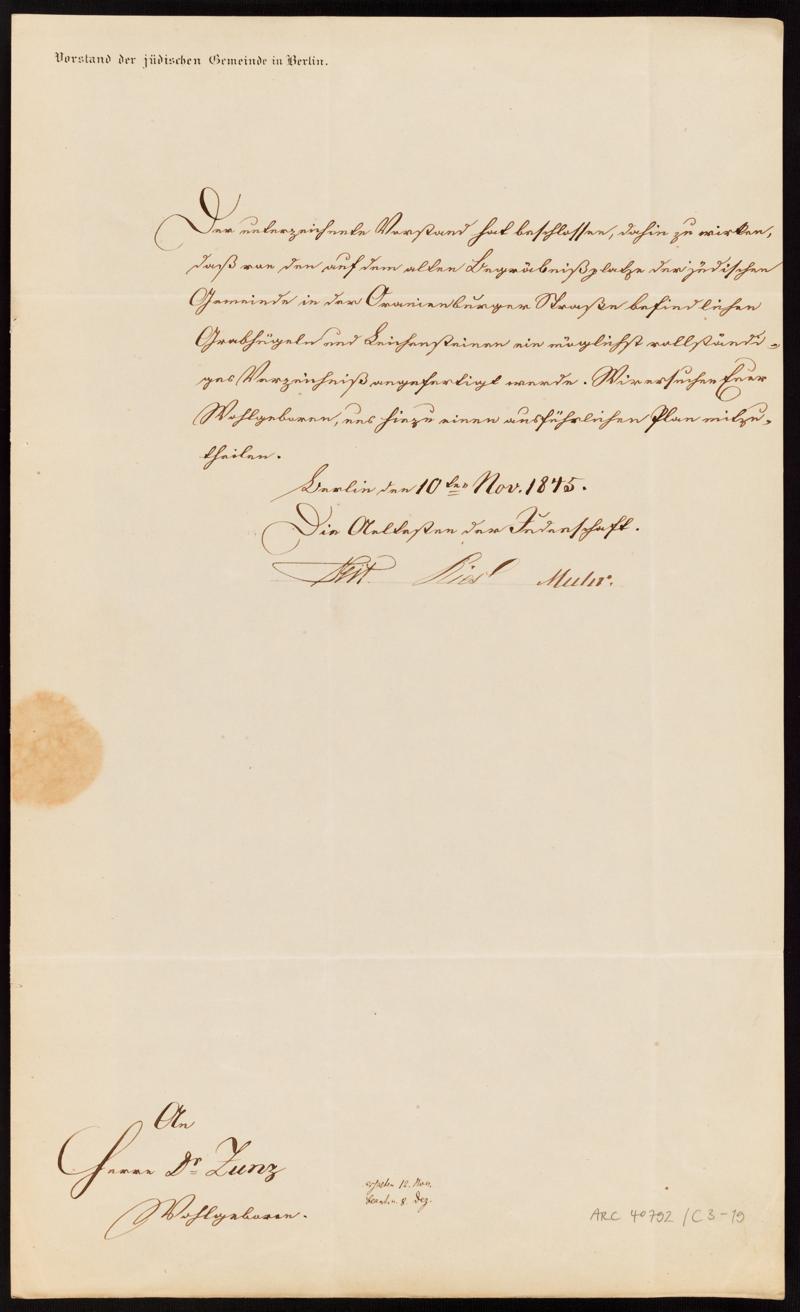 Vorstand der jüdischen Gemeinde in Berlin.
Der unterzeichnete Vorstand hat beschlossen, dahin zu wirken,
daß von den auf dem alten Begräbnißplatze der jüdischen
Gemeinde in der Oranienburger Straße befindlichen
Grabhügeln und Leichensteinen ein möglichst vollständi-
ges Verzeichniß angefertigt werde. Wir ersuchen Euer
Wohlgeboren, uns hiezu einen ausführlichen Plan mitzu-
theilen.
Berlin den 10ten Nov. 1845.
Die Aeltesten der Judenschaft.
Veit Riess Muhr.
An
Herrn Dr Zunz
Wohlgeboren.
erhalten 12. Nov.
beantw. 8. Dez.
ARC 4o 792 / C3-19